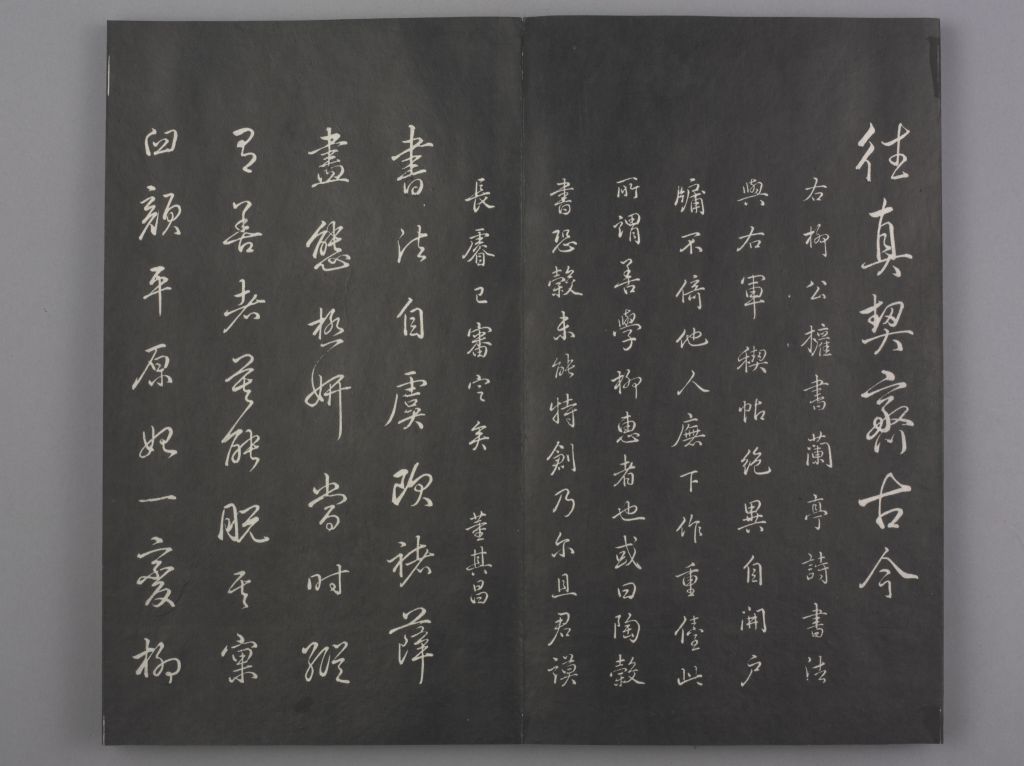 往真契齋古今
右柳公權書蘭亭詩書法
與右軍稧帖絶異自開戶
牖不倚他人廡下作重儓此
所謂善學柳惠者也或曰陶穀
書恐穀未能特創乃尔且君謨
長睿已審定矣 董其昌
書法自虞歐褚薛
盡態極妍當時縱
有善者莫能脫其窠
臼顔平原始一變柳